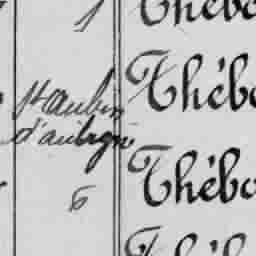 1 Thébo
St Aubin Thébo
d'aubigné
6 Thébo
Thébo